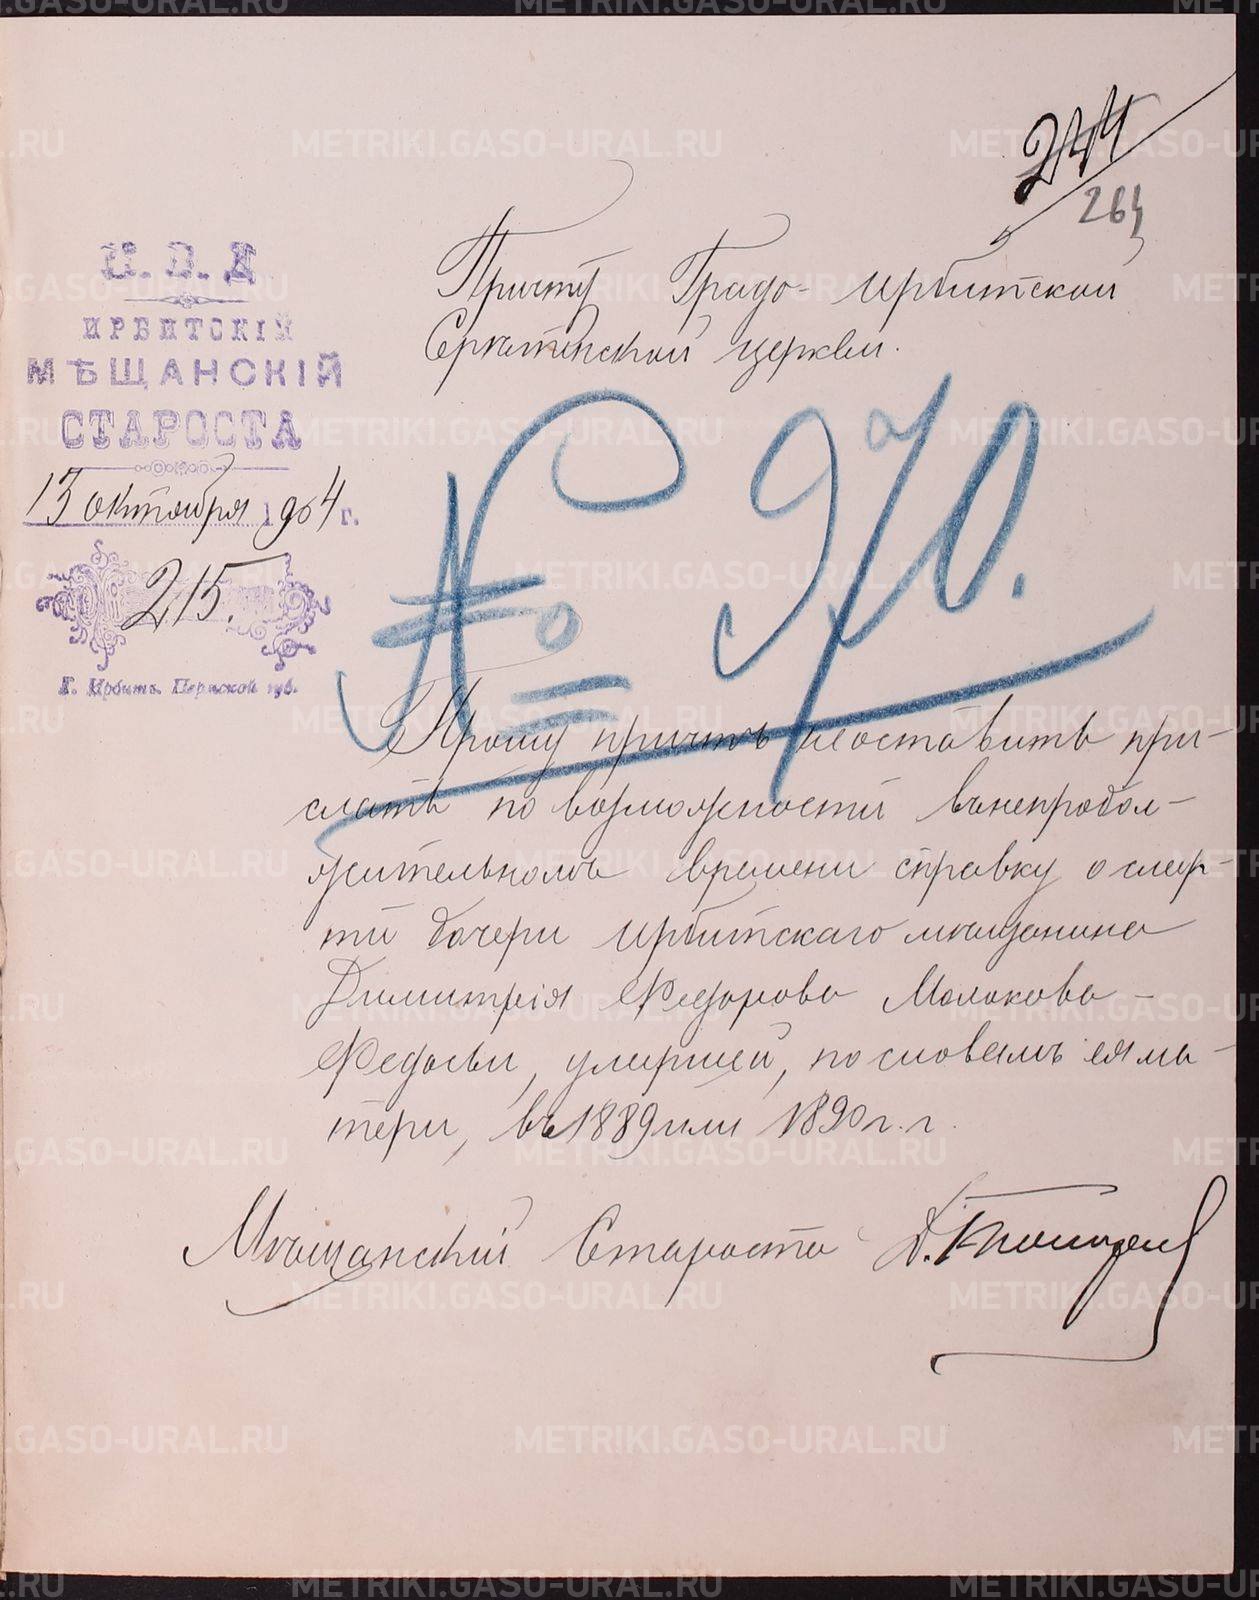 244
264
И. В. Д
ИРБИТСКІЙ
МѢЩАНСКІЙ
СТАРОСТА
13 октября 1904 г.
215.
Г. Ирбитъ Пермской губ.
Причту Градо-Ирбитской
Срѣтенской церкви.
№ 970.
Прошу причтъ неоставить при-
слать по возможности въ непродол-
жительномъ времени справку о смер-
ти дочери Ирбитскаго мѣщанина
Димитрія Федорова Малакова -
Федосьи, умершей, по словамъ ея ма-
тери, въ 1889 или 1890 г.г.
Мѣщанскій Староста Д.
METRIKI.GASO-URAL.RU